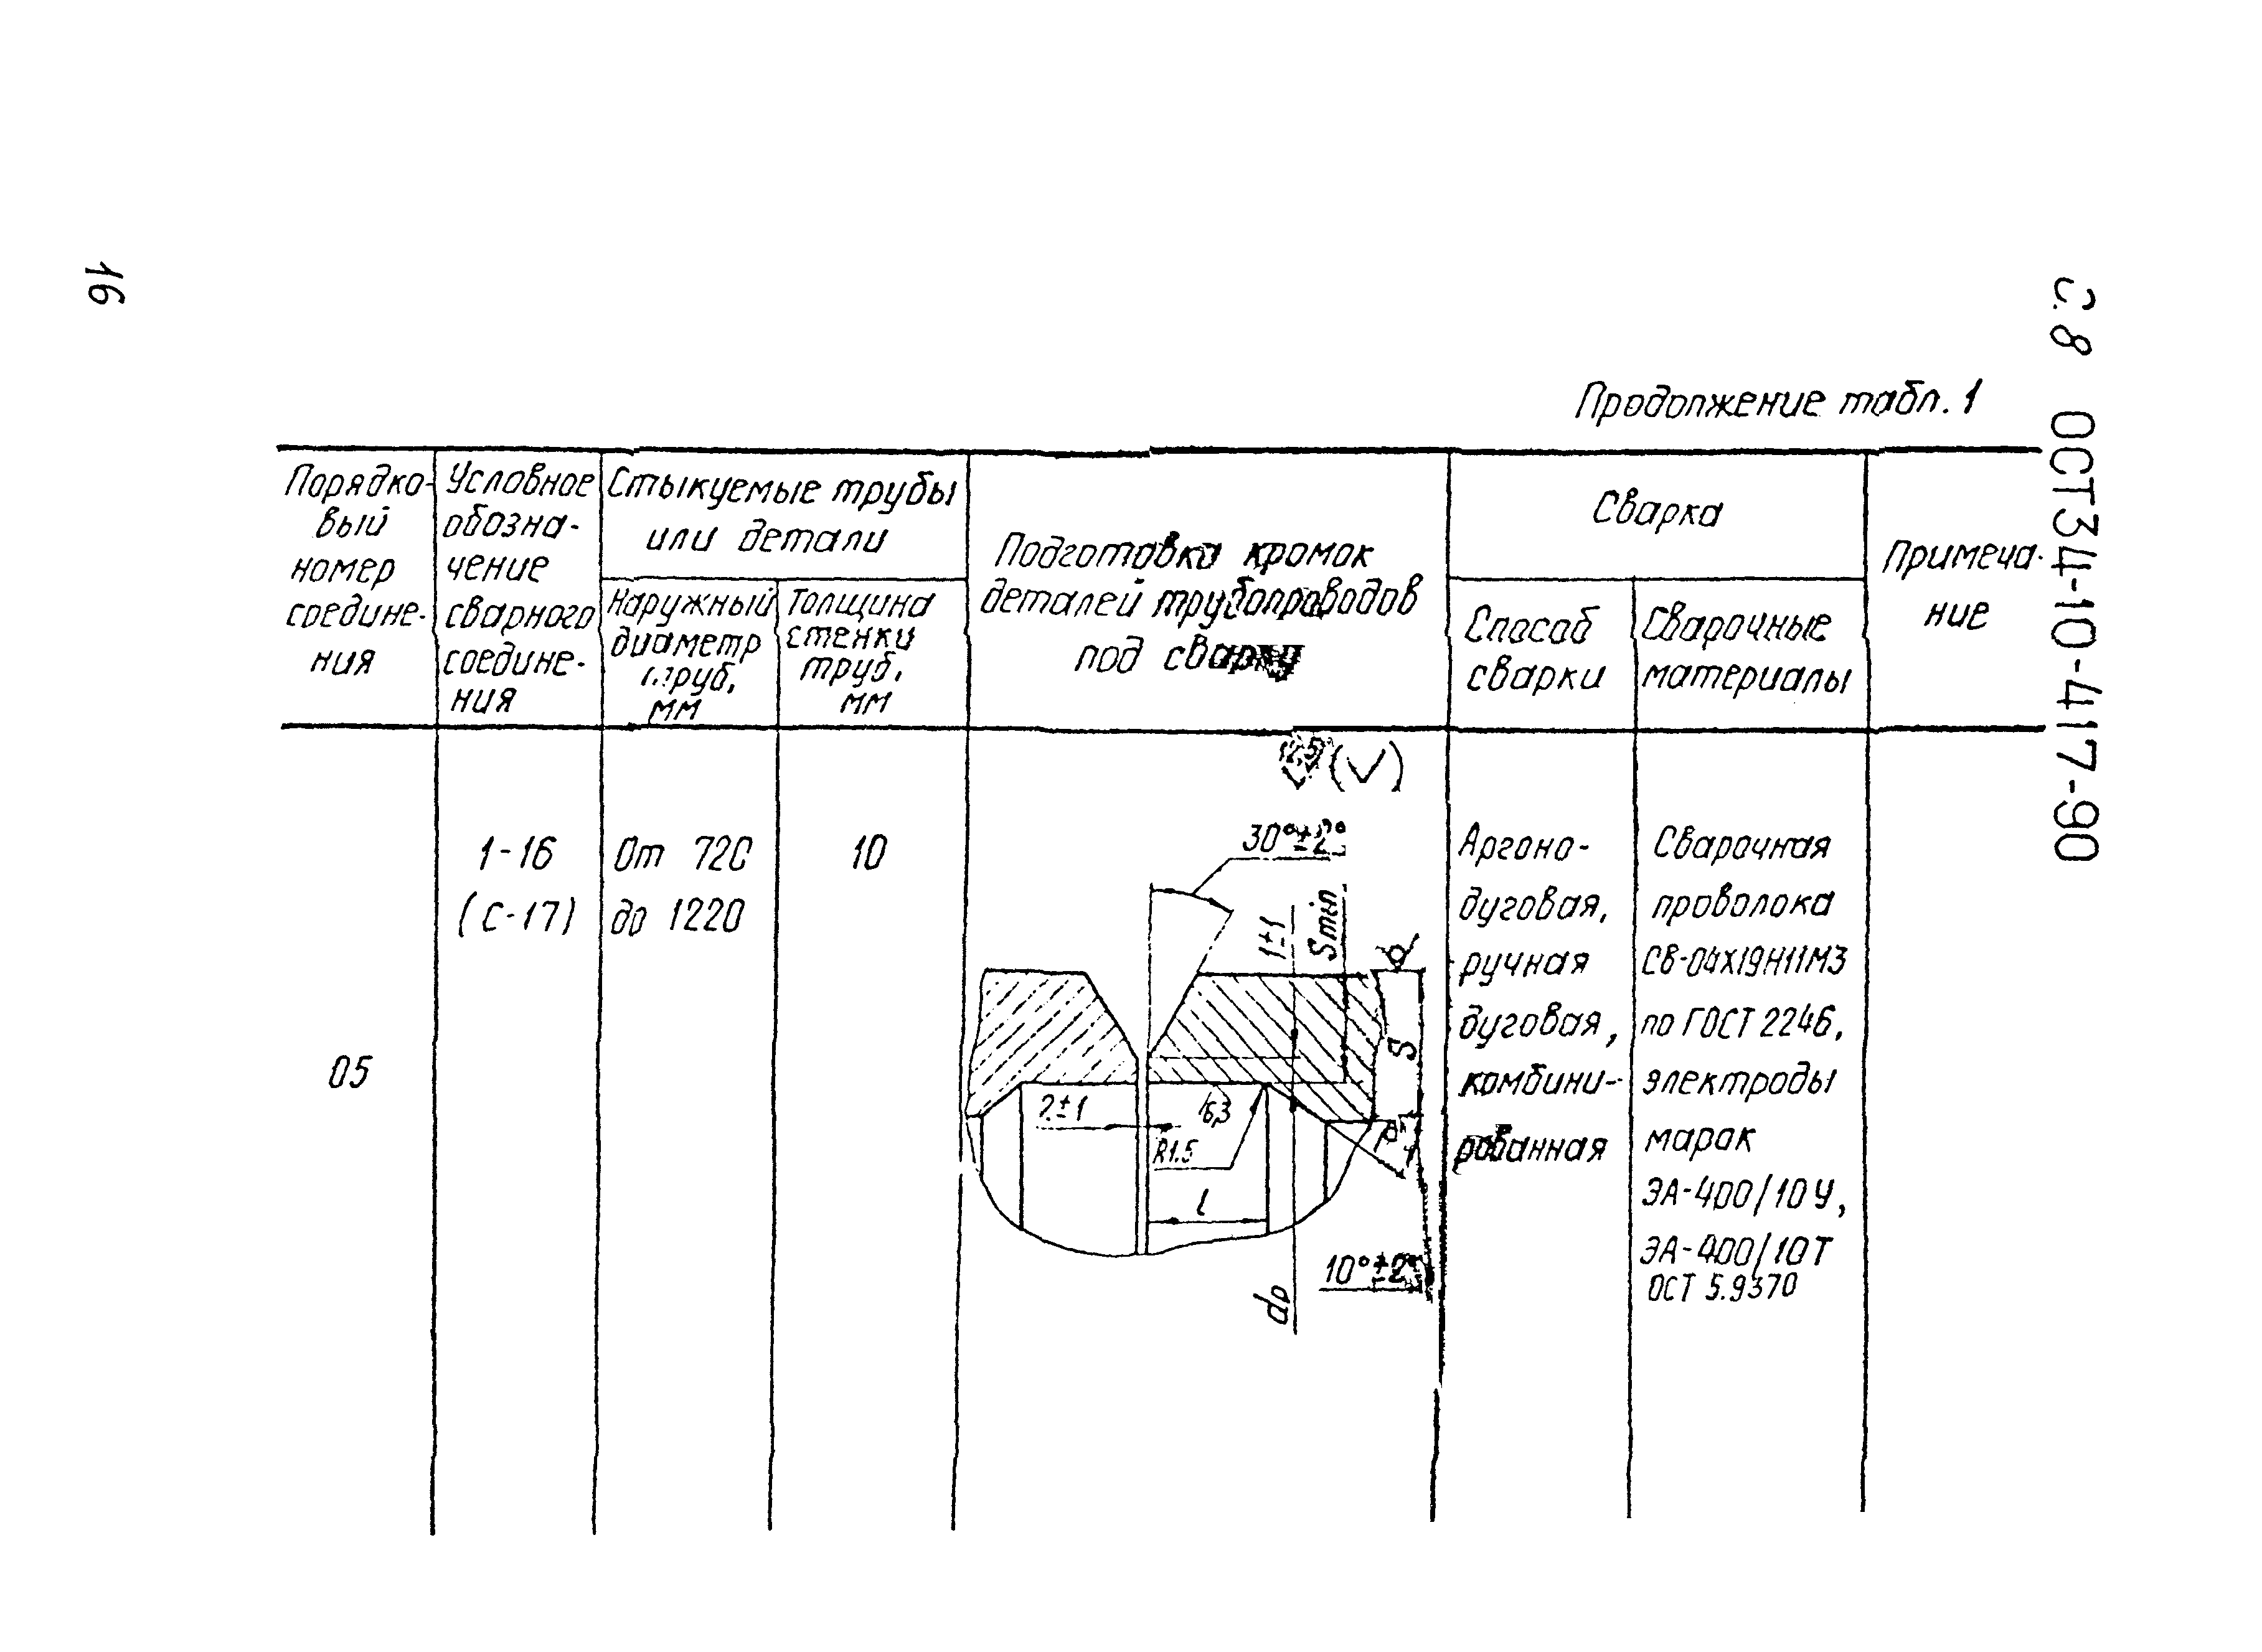 16
С. 8 ОСТ 34-10-417-90
Продолжение табл. 1
Порядко-
вый
номер
соедине-
ния
Условное
обозна-
чение
сварного
соедине-
ния
Стыкуемые трубы
или детали
Наружный
диаметр
труб,
мм
Толщина
стенки
труб,
мм
Подготовка кромок
деталей трубопроводов
под сварку
Сварка
Способ
сварки
Сварочные
материалы
Примеча-
ние
05
1-16
(С-17)
От 720
до 1220
10
12,5 (√)
30°±2°
1±1
Smin
S
2±1
6,3
R1.5
l
10°±2°
dp
Аргоно-
дуговая,
ручная
дуговая,
комбини-
рованная
Сварочная
проволока
Св-04Х19Н11М3
по ГОСТ 2246,
электроды
марок
ЭА-400/10У,
ЭА-400/10Т
ОСТ 5.9370